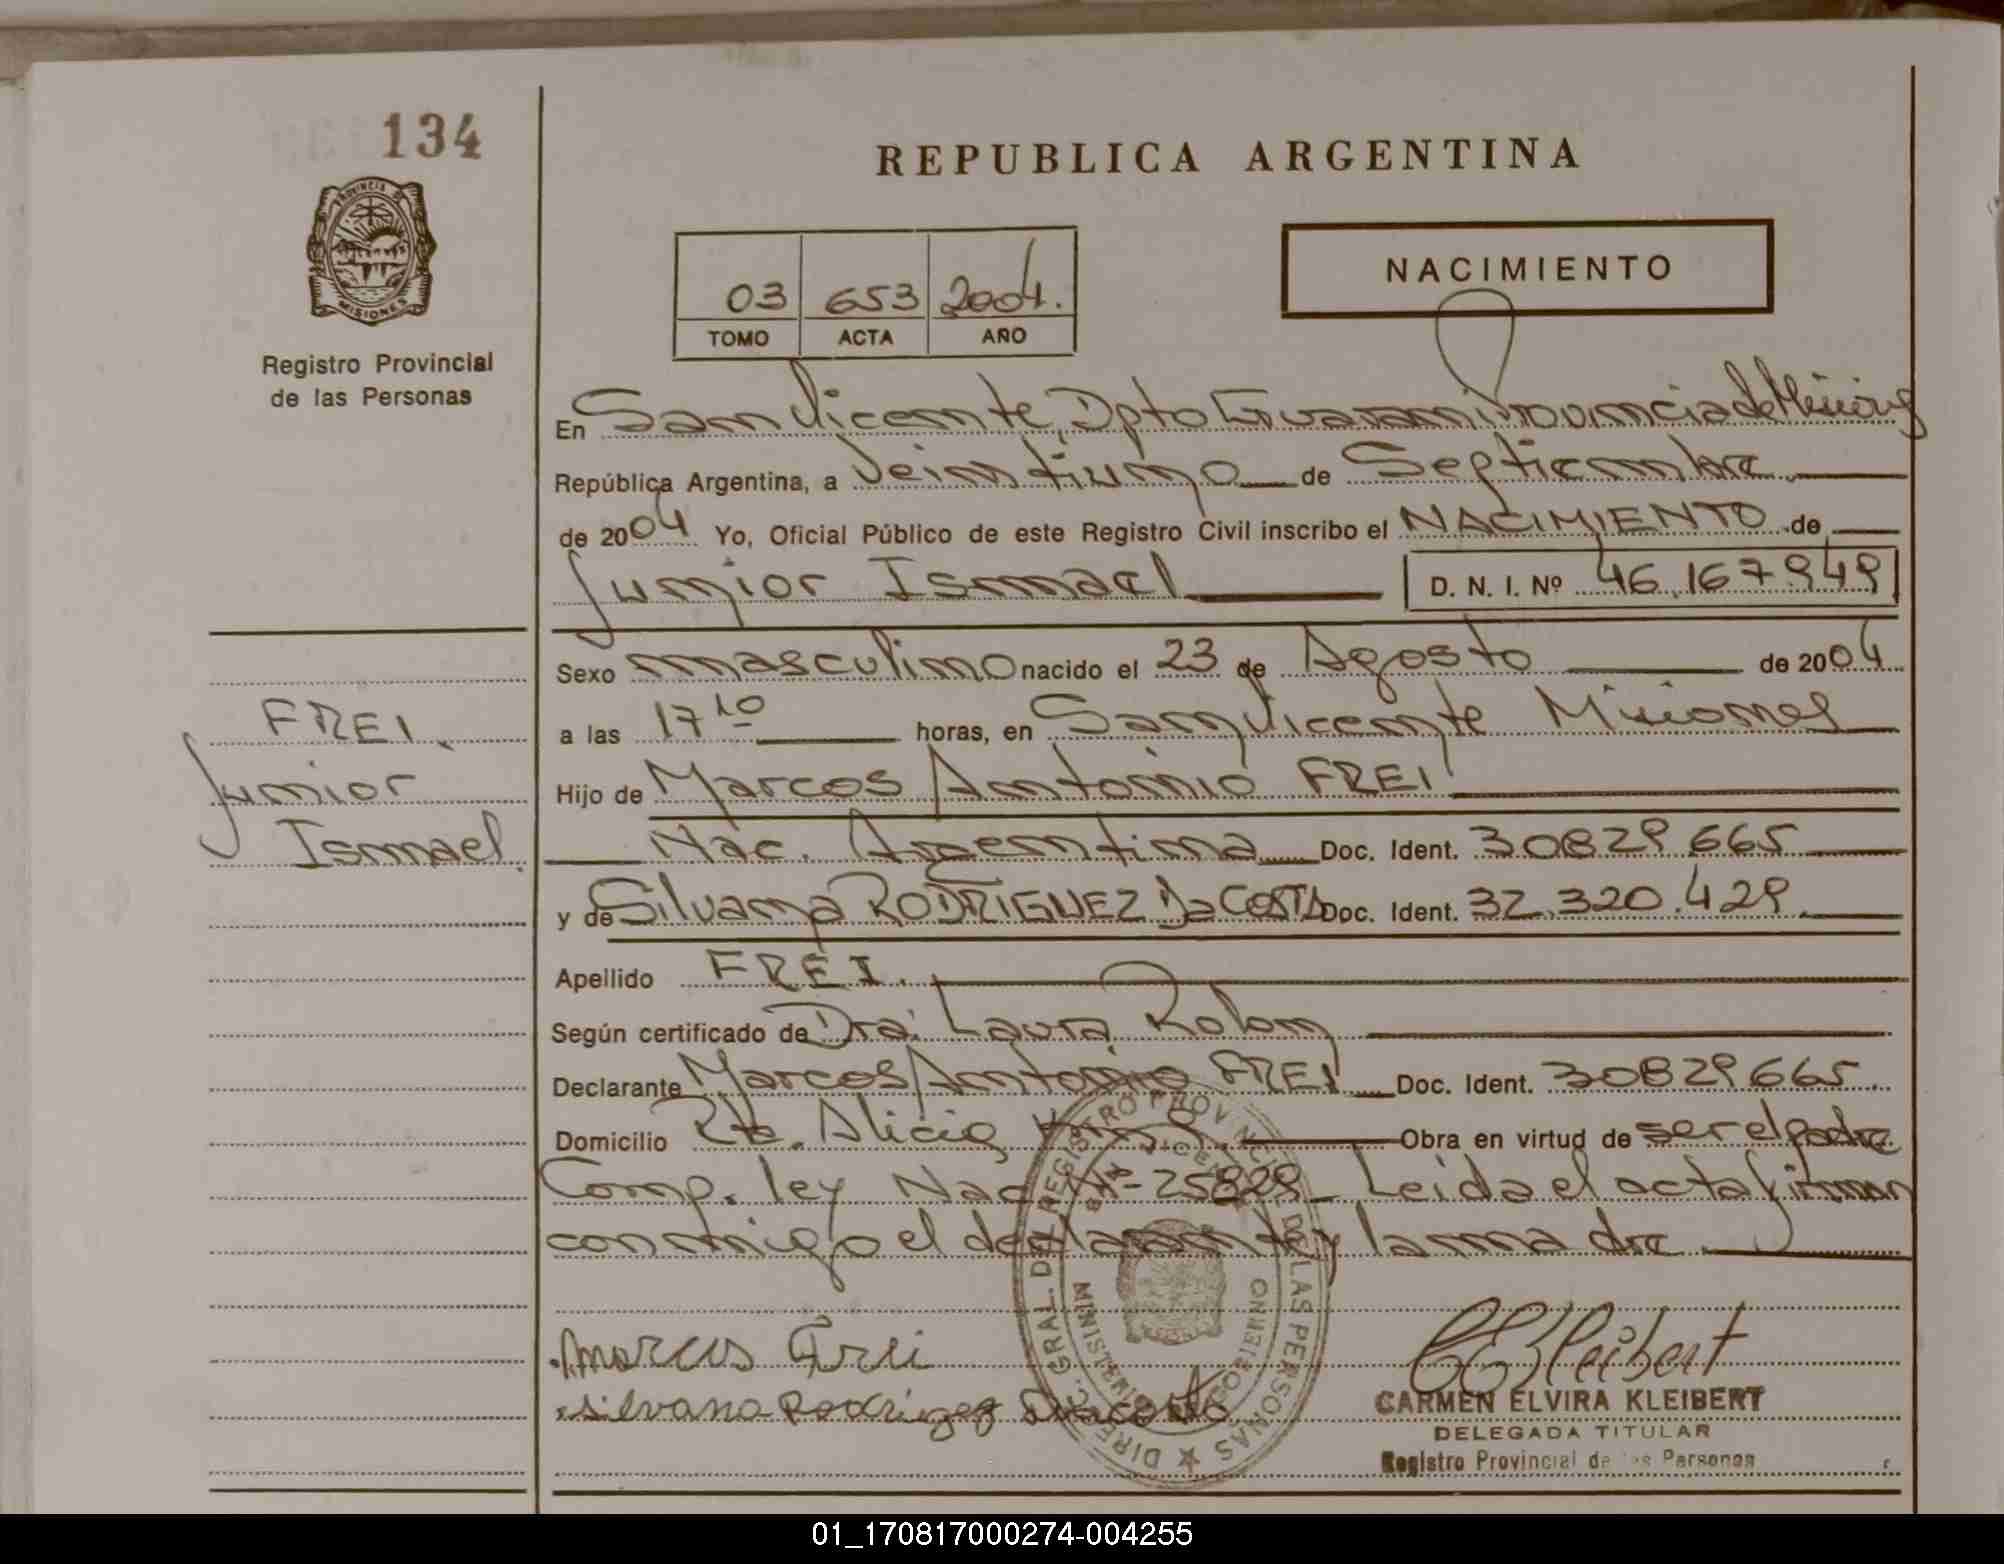 134
REPUBLICA ARGENTINA
PROVINCIA DE
MISIONES
Registro Provincial
de las Personas
03 653 2004.
TOMO ACTA AÑO
NACIMIENTO
En San Vicente, Dpto Guarani Provincia de Misiones
República Argentina, a veintiuno de Septiembre
de 2004 Yo, Oficial Público de este Registro Civil inscribo el NACIMIENTO de
Junior Ismael D. N. I. Nº 46.167.949
Sexo masculino nacido el 23 de Agosto de 2004
a las 17 10 horas, en San Vicente Misiones
Hijo de Marcos Antonio FREI
Nac. Argentina Doc. Ident. 30829665
y de Silvana RODRIGUEZ Da COSTA Doc. Ident. 32.320.429
Apellido FREI.
Según certificado de Dra. Laura Rolon
Declarante Marcos Antonio FREI Doc. Ident. 30829665.
Domicilio Pto. Alicia Obra en virtud de ser el padre
Comp. ley Nac Nº 25829 Leida el acta firman
conmigo el declarante y la madre
FREI.
Junior
Ismael.
Marcos Frei
Silvana Rodriguez Dacosta
DIREC. GRAL. DEL REGISTRO PROVINCIAL DE LAS PERSONAS
SAN VICENTE
MINISTERIO GOBIERNO
CEKleibert
CARMEN ELVIRA KLEIBERT
DELEGADA TITULAR
Registro Provincial de las Personas
01_170817000274-004255